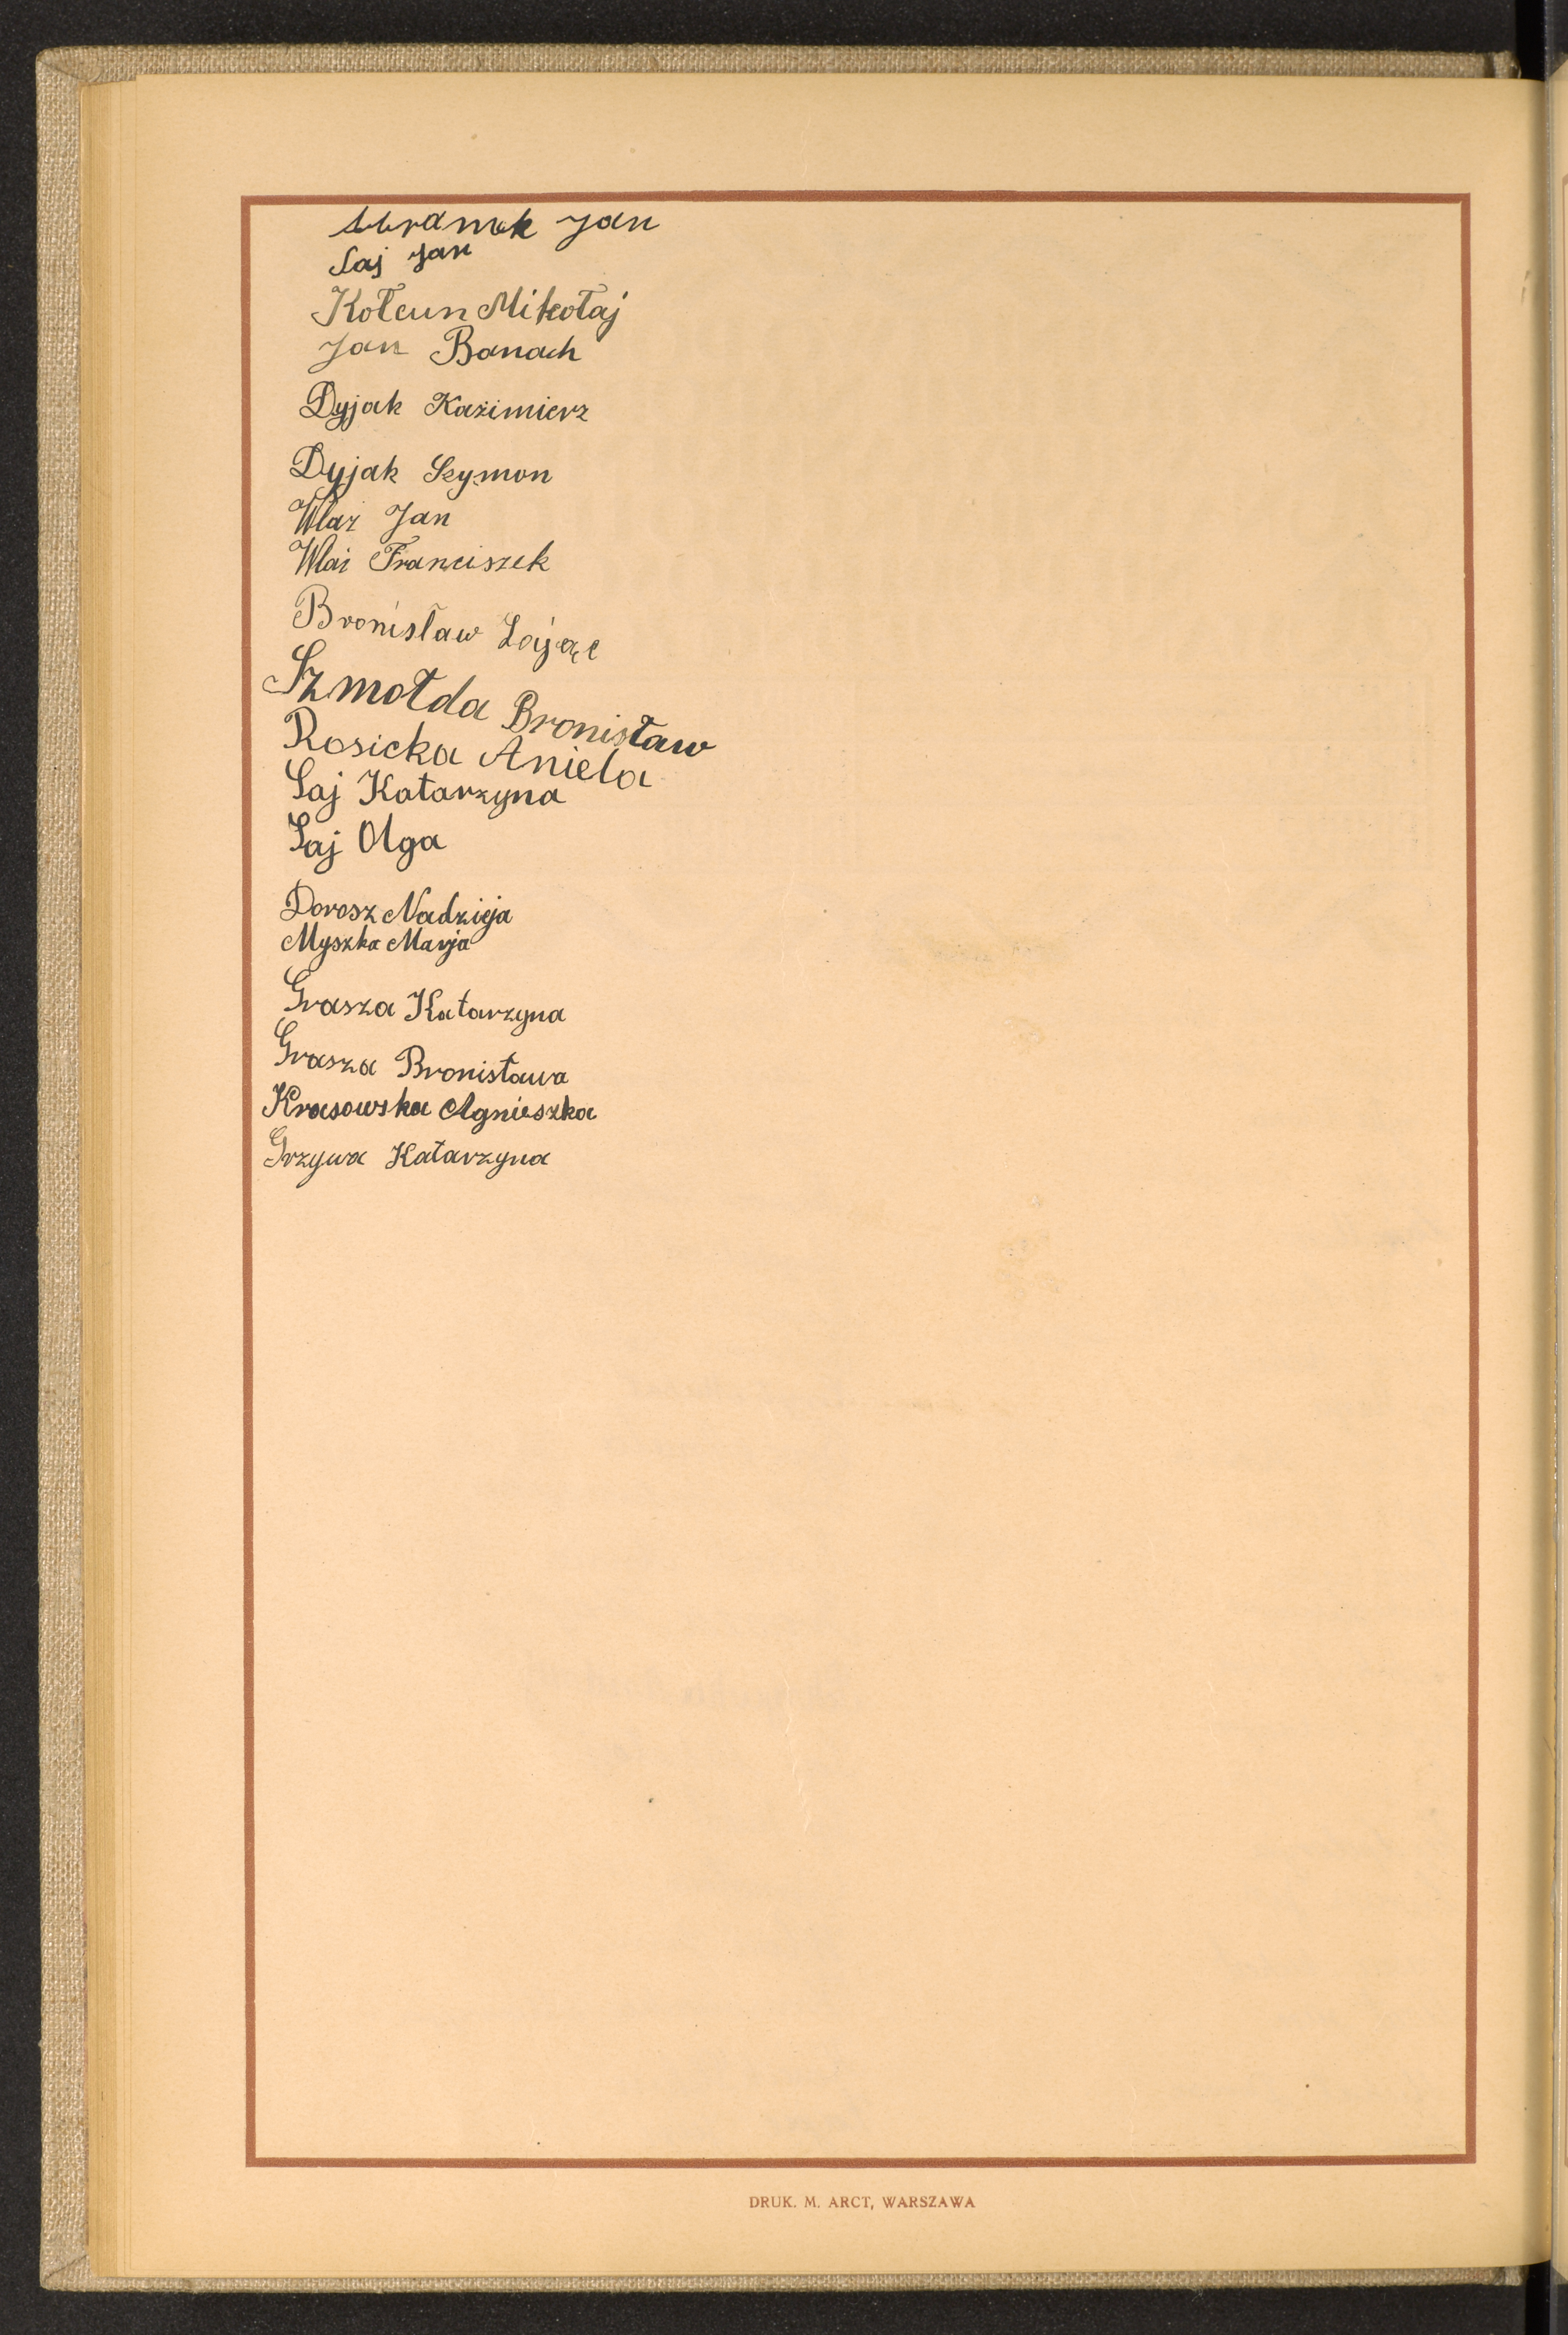 Jan
Saj Jan
Kołcun Mikołaj
Jan Banach
Dyjak Kazimierz
Dyjak Szymon
Wlaź Jan
Wlaź Franciszek
Bronisław Zając
Szmołda Bronisław
Rosicka Aniela
Saj Katarzyna
Saj Olga
Dorosz Nadzieja
Myszka Marja
Grasza Katarzyna
Grasza Bronisława
Krasowska Agnieszka
Grzywa Katarzyna
DRUK. M. ARCT, WARSZAWA